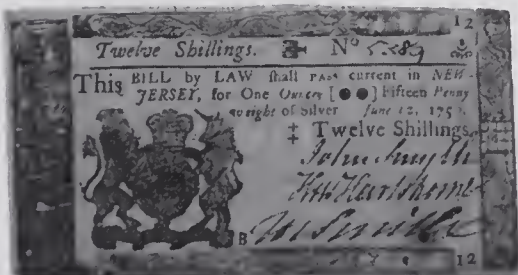 12
Twelve Shillings. No 5589
This BILL by LAW shall PASS current in NEW-
JERSEY, for One Ounce [●●] Fifteen Penny
weight of Silver June 12, 175
‡ Twelve Shillings.
John Smyth
Hartshorne
B Smith
12